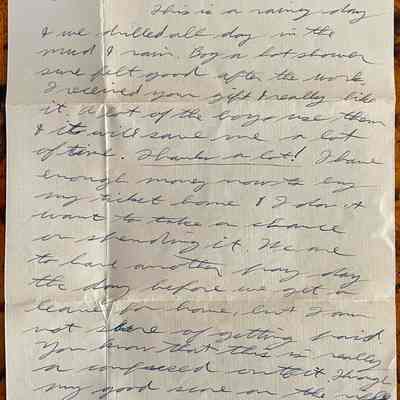 This is a rainy day
& we drilled all day in the
mud & rain. Boy a hot shower
sure felt good after the work.
I received your gift & really like
it. A lot of the boys use them
& it will save me a lot
of time. Thanks a lot! I have
enough money now to buy
my ticket home & I don't
want to take a chance
on spending it. We are
to have another pay day
the day before we get a
leave for home, but I am
not sure of getting paid.
You know that this is really
a confused outfit. Through
my good score on the